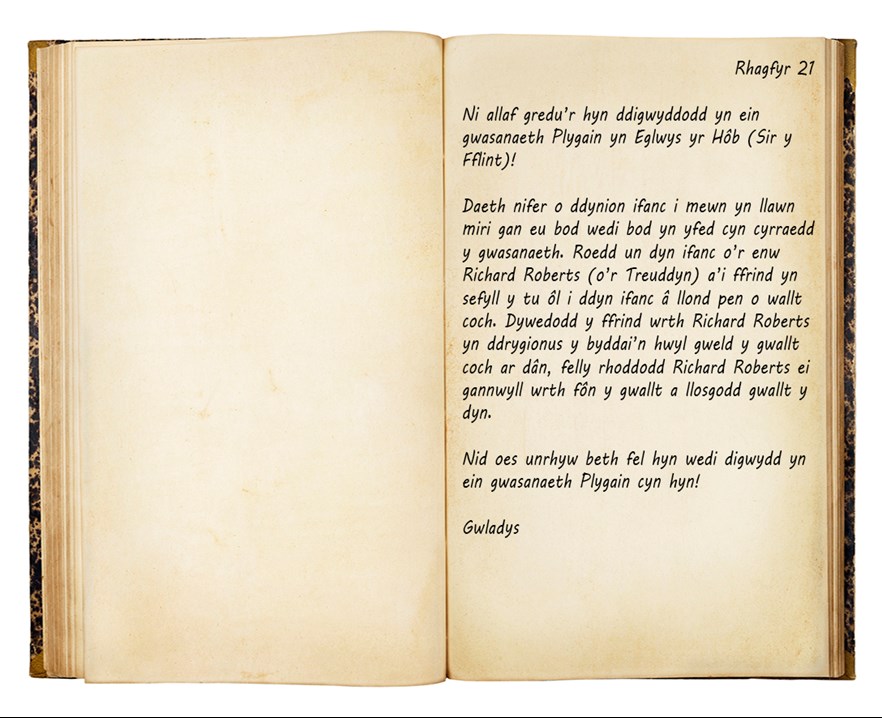 Rhagfyr 21
Ni allaf gredu'r hyn ddigwyddodd yn ein
gwasanaeth Plygain yn Eglwys yr Hôb (Sir y
Fflint)!
Daeth nifer o ddynion ifanc i mewn yn llawn
miri gan eu bod wedi bod yn yfed cyn cyrraedd
y gwasanaeth. Roedd un dyn ifanc o'r enw
Richard Roberts (o'r Treuddyn) a'i ffrind yn
sefyll y tu ôl i ddyn ifanc â llond pen o wallt
coch. Dywedodd y ffrind wrth Richard Roberts
yn ddrygionus y byddai'n hwyl gweld y gwallt
coch ar dân, felly rhoddodd Richard Roberts ei
gannwyll wrth fôn y gwallt a llosgodd gwallt y
dyn.
Nid oes unrhyw beth fel hyn wedi digwydd yn
ein gwasanaeth Plygain cyn hyn!
Gwladys